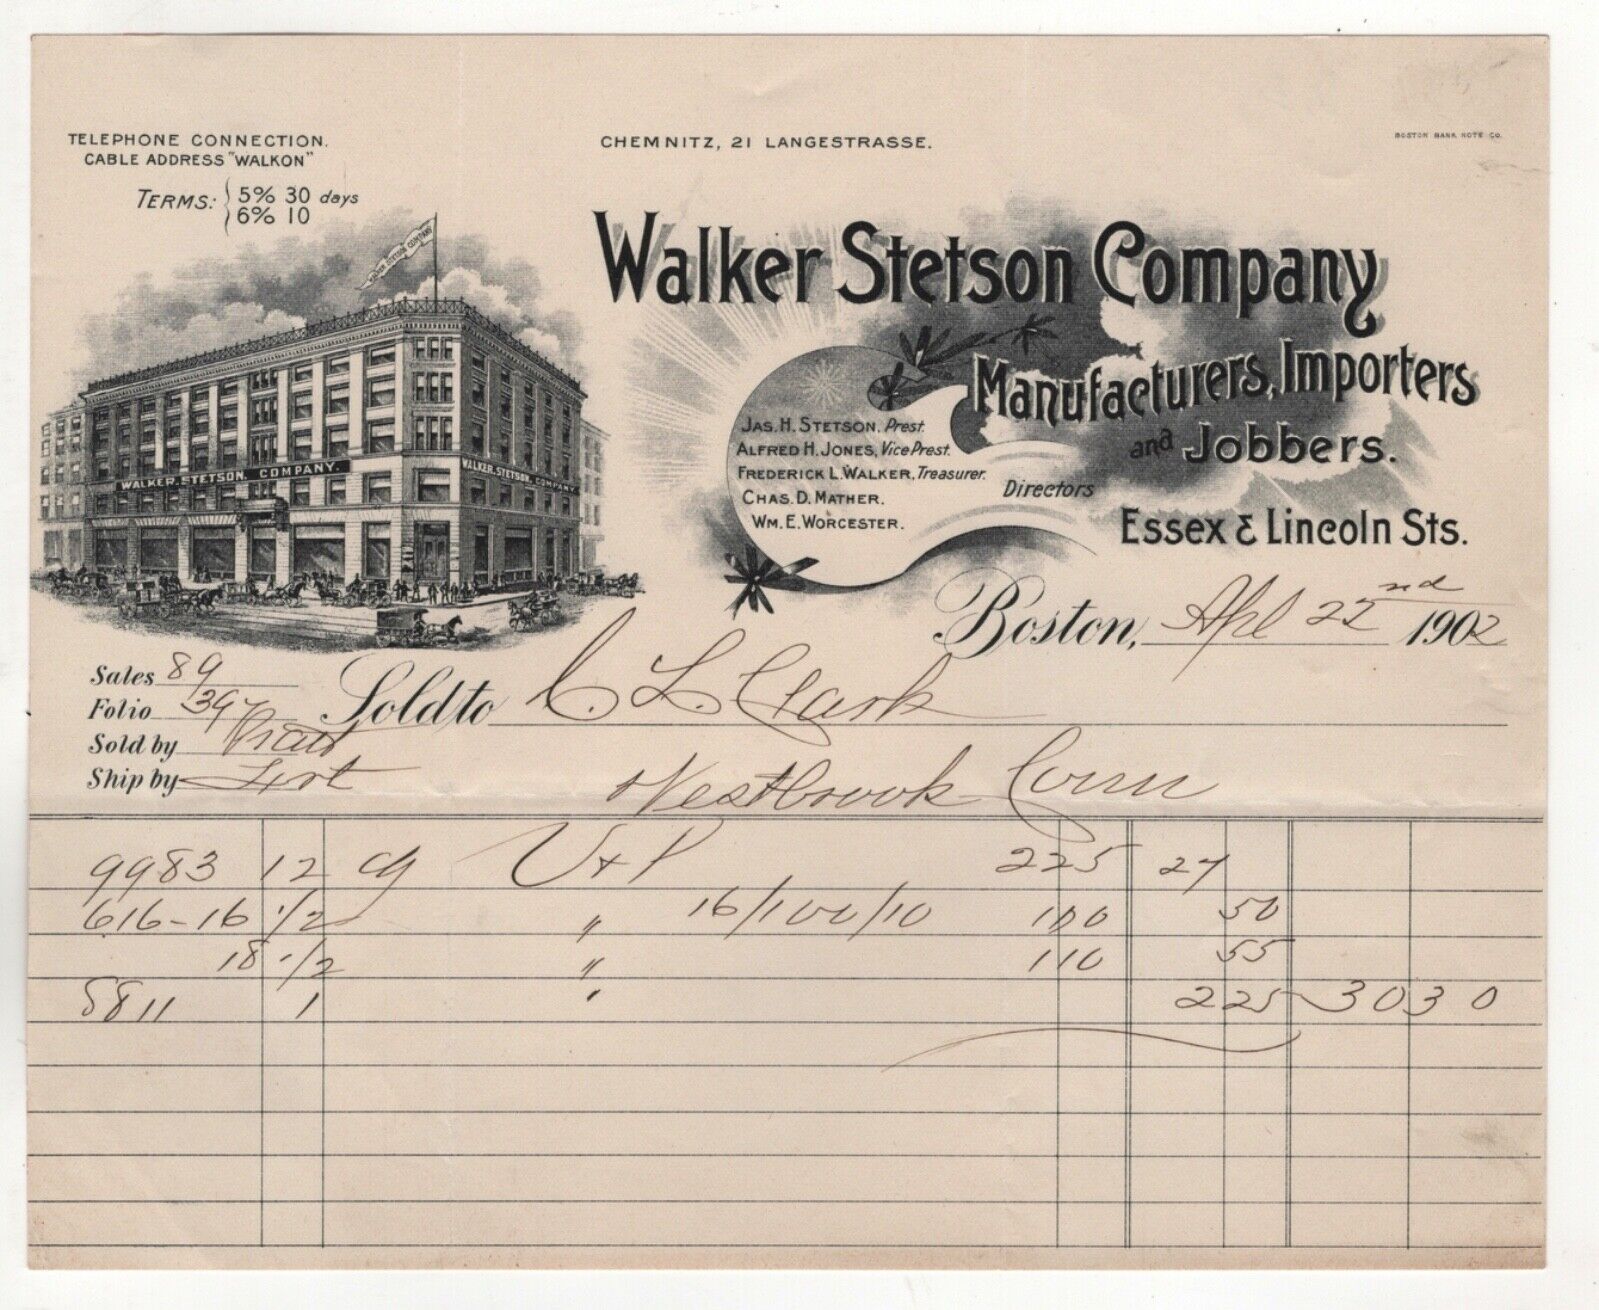 TELEPHONE CONNECTION.
CABLE ADDRESS "WALKON"
TERMS: 5% 30 days
6% 10
CHEMNITZ, 21 LANGESTRASSE.
BOSTON BANK NOTE CO.
WALKER STETSON COMPANY
WALKER, STETSON, COMPANY.
WALKER, STETSON, COMPANY.
Walker Stetson Company
Manufacturers, Importers
and Jobbers.
JAS. H. STETSON, Prest.
ALFRED H. JONES, Vice Prest.
FREDERICK L. WALKER, Treasurer.
CHAS. D. MATHER.
WM. E. WORCESTER.
Directors
Essex & Lincoln Sts.
Boston, Apl 22nd 1902
Sales 89
Folio 397
Sold by
Ship by Frt
Sold to C. L. Clark
Westbrook Conn
9983 12 U + P 225 27
616-16 1/2 " 16/100/10 100 50
18 1/2 " 110 55
8811 1 " 225 30 30